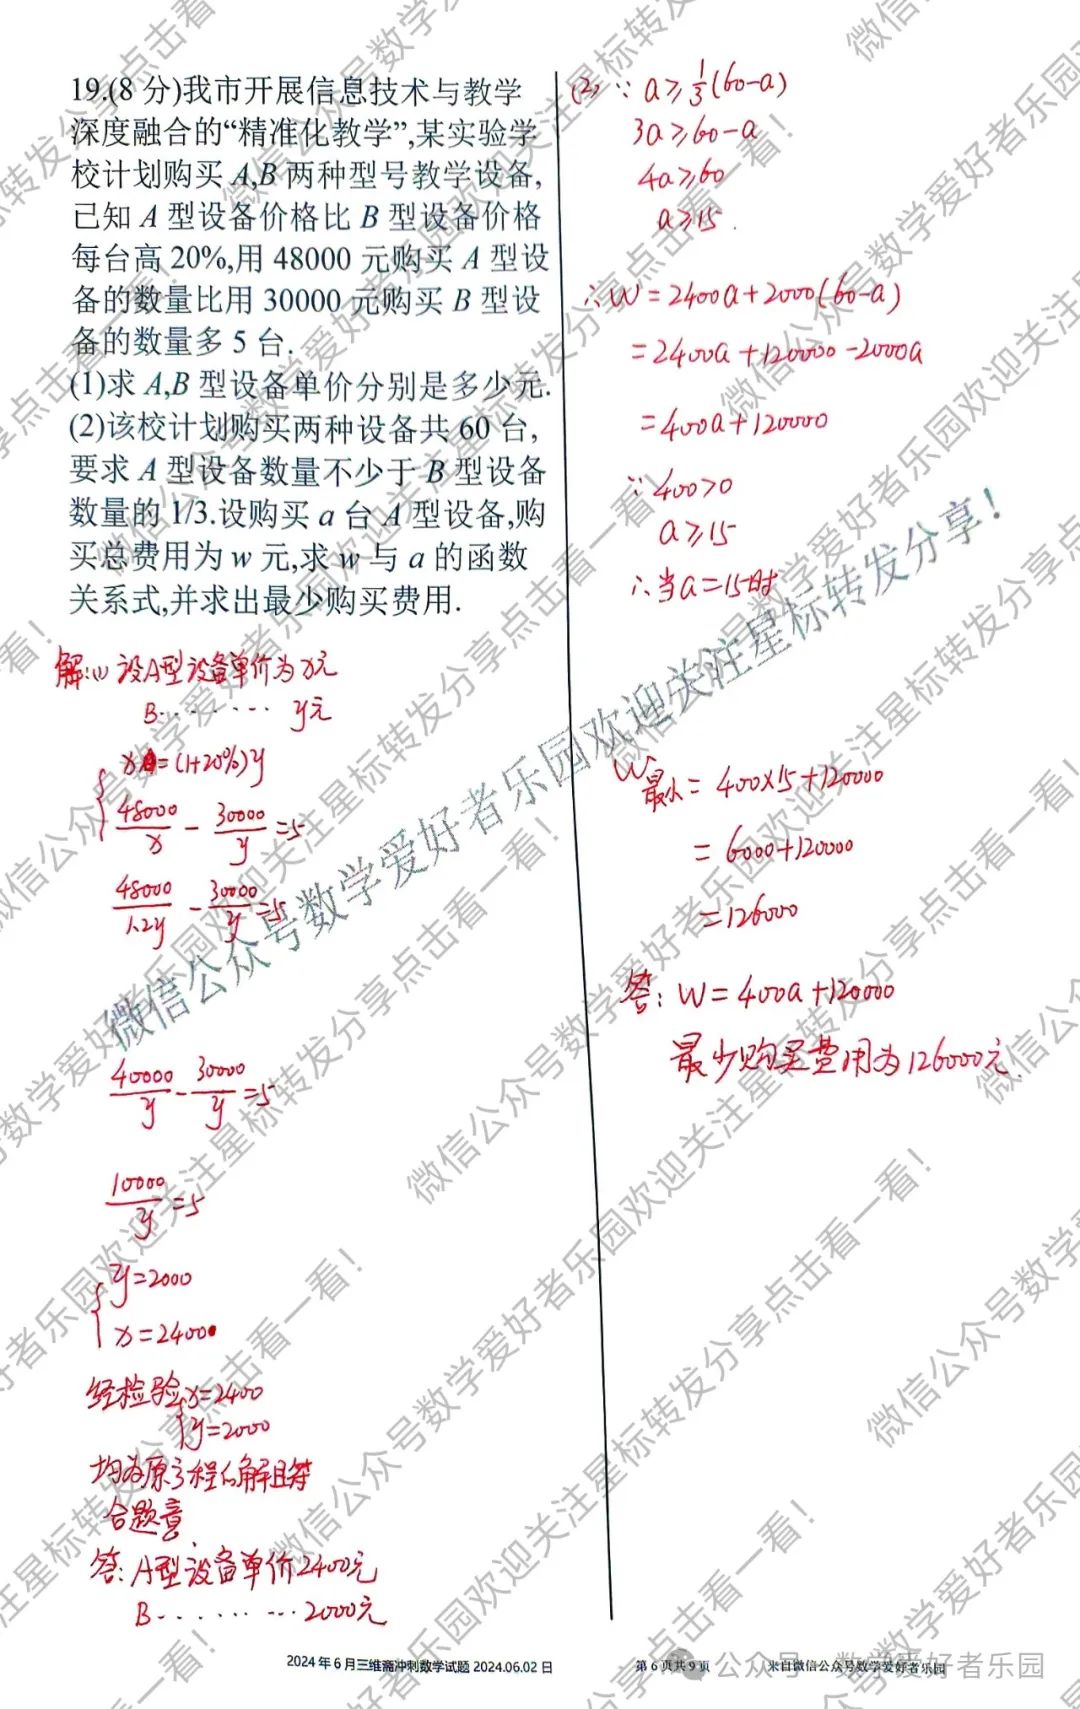 19.(8 分)我市开展信息技术与教学
深度融合的“精准化教学”,某实验学
校计划购买 A,B 两种型号教学设备,
已知 A 型设备价格比 B 型设备价格
每台高 20%,用 48000 元购买 A 型设
备的数量比用 30000 元购买 B 型设
备的数量多 5 台.
(1)求 A,B 型设备单价分别是多少元.
(2)该校计划购买两种设备共 60 台,
要求 A 型设备数量不少于 B 型设备
数量的 1/3.设购买 a 台 A 型设备,购
买总费用为 w 元,求 w 与 a 的函数
关系式,并求出最少购买费用.
解:(1)设A型设备单价为x元
B········y元
x=(1+20%)y
48000/x - 30000/y =5
48000/1.2y - 30000/y =5
40000/y - 30000/y =5
10000/y =5
y=2000
x=2400
经检验x=2400
y=2000
均为原方程的解且符
合题意
答:A型设备单价2400元
B·········2000元
(2)∵a≥1/3(60-a)
3a≥60-a
4a≥60
a≥15.
∴W=2400a+2000(60-a)
=2400a+120000-2000a
=400a+120000
∵400>0
a≥15
∴当a=15时
W最小=400×15+120000
=6000+120000
=126000
答:W=400a+120000
最少购买费用为126000元.
微信公众号数学爱好者乐园欢迎关注星标转发分享!
微信公众号数学爱好者乐园欢迎关注星标转发分享点击看一看!
2024年6月三维斋冲刺数学试题 2024.06.02日
第 6 页共 9 页
来自微信公众号数学爱好者乐园
公众号·数学爱好者乐园